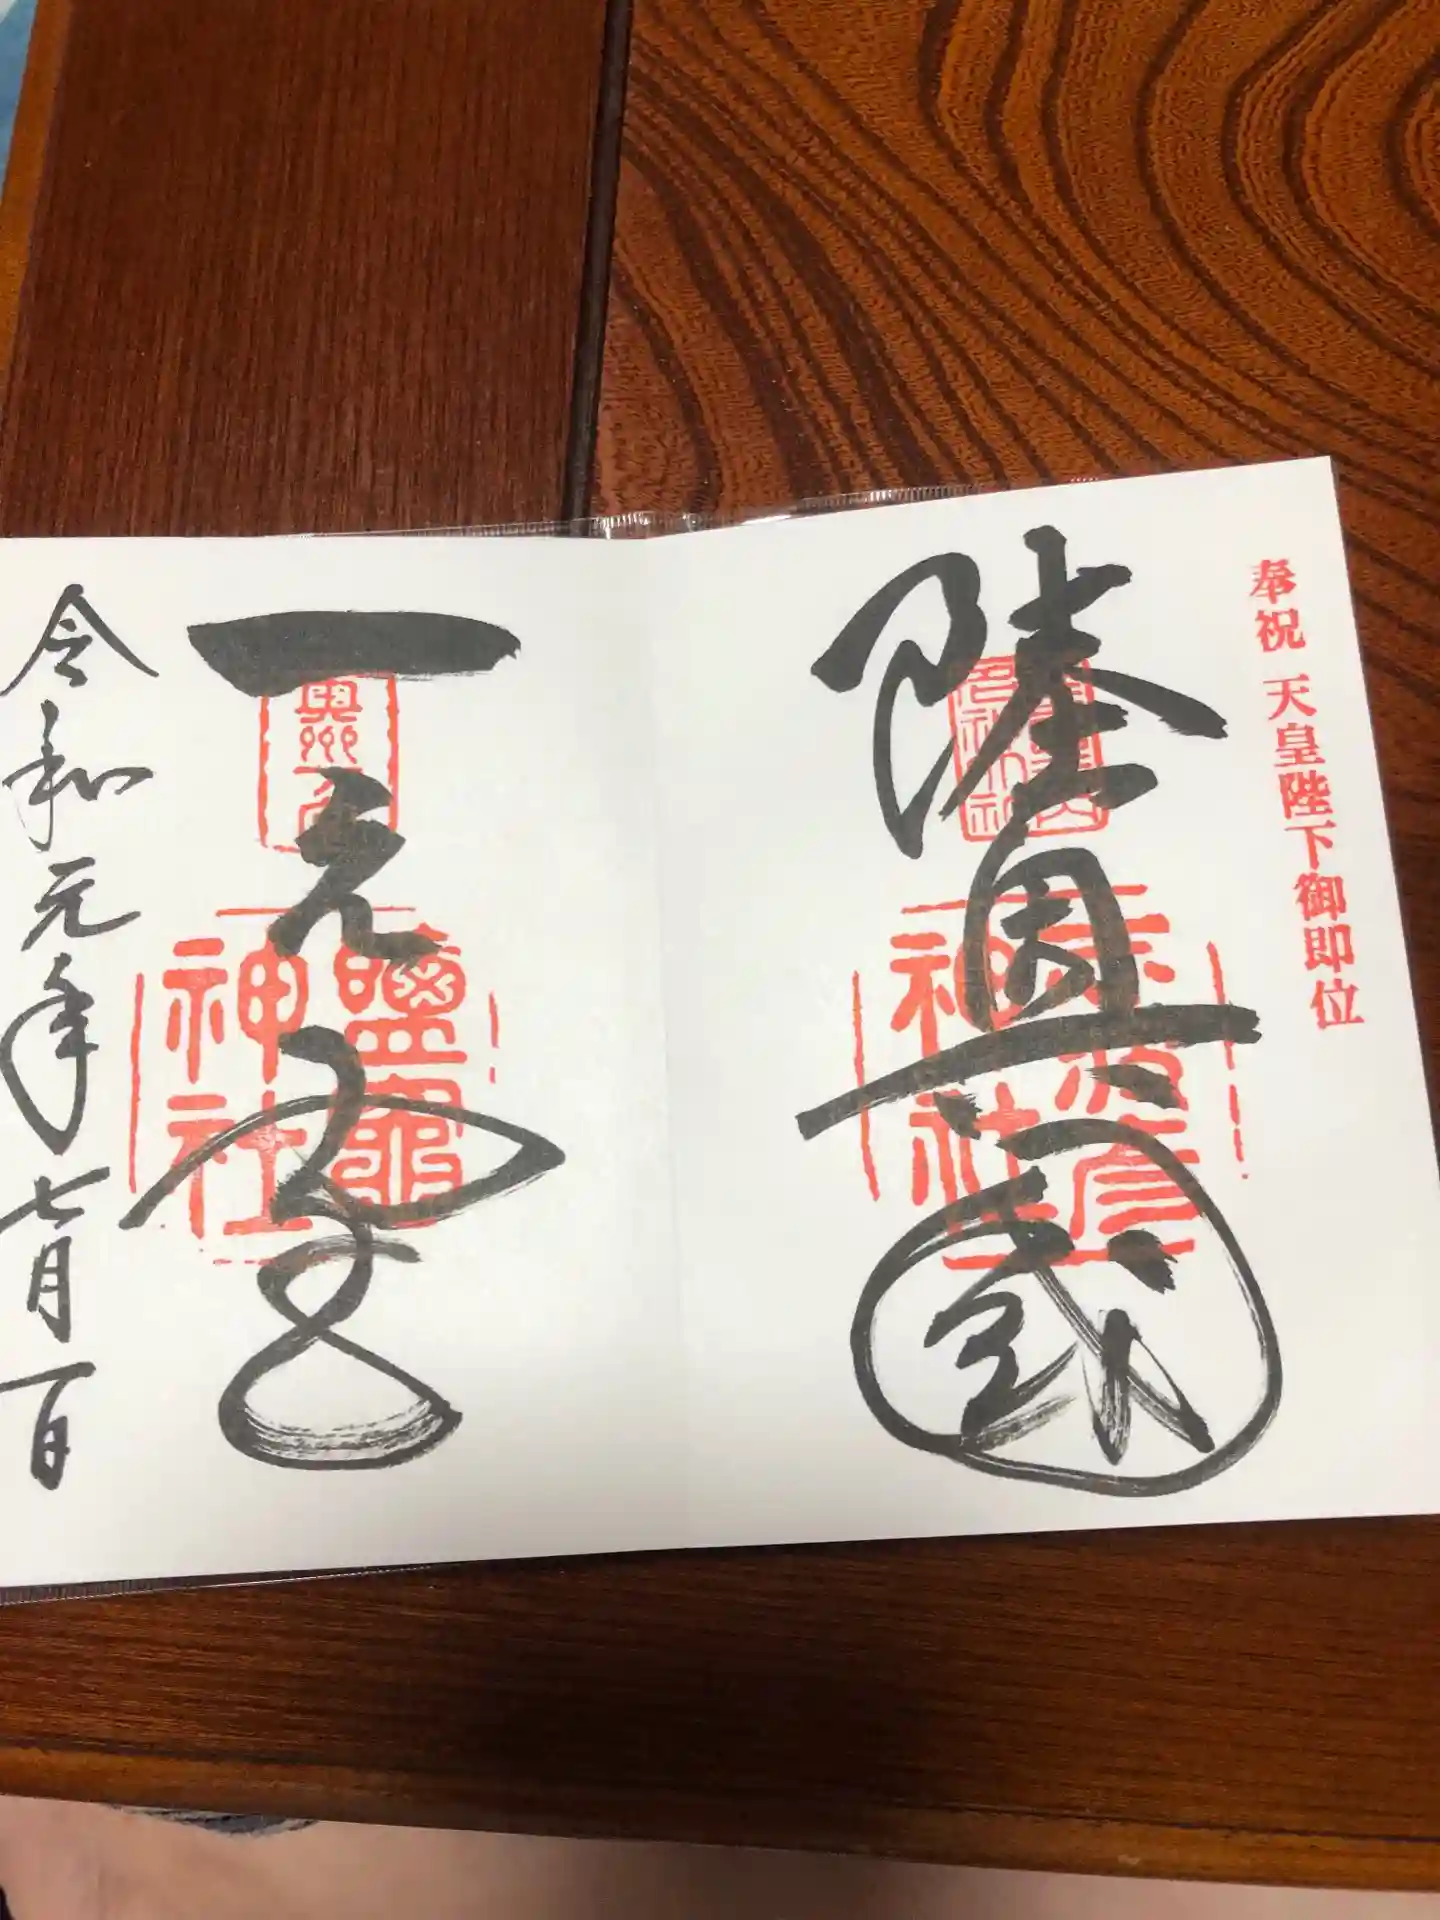 奉祝 天皇陛下御即位
陸奥國
志波彦
神社
一之宮
奥州一宮
鹽竈
神社
令和元年七月一日